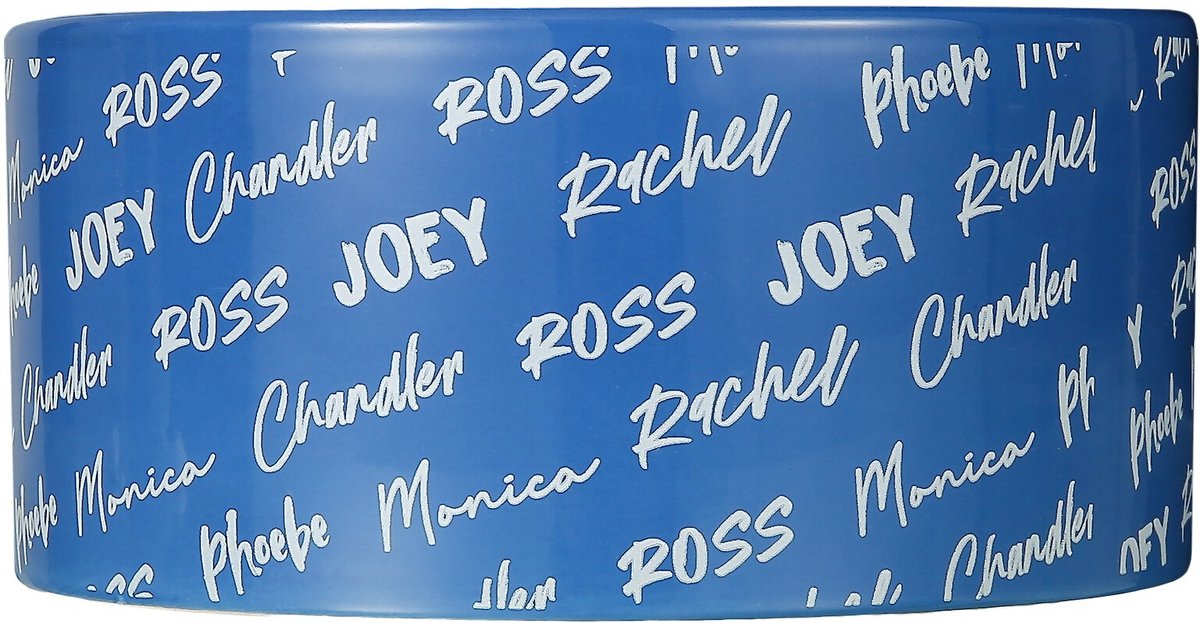 ROSS ROSS Phoebe
Monica Chandler Rachel Rachel ROSS
JOEY JOEY JOEY
Phoebe ROSS ROSS Chandler
Chandler Chandler Rachel
Monica Monica Monica Phoebe
Phoebe Phoebe ROSS Chandler